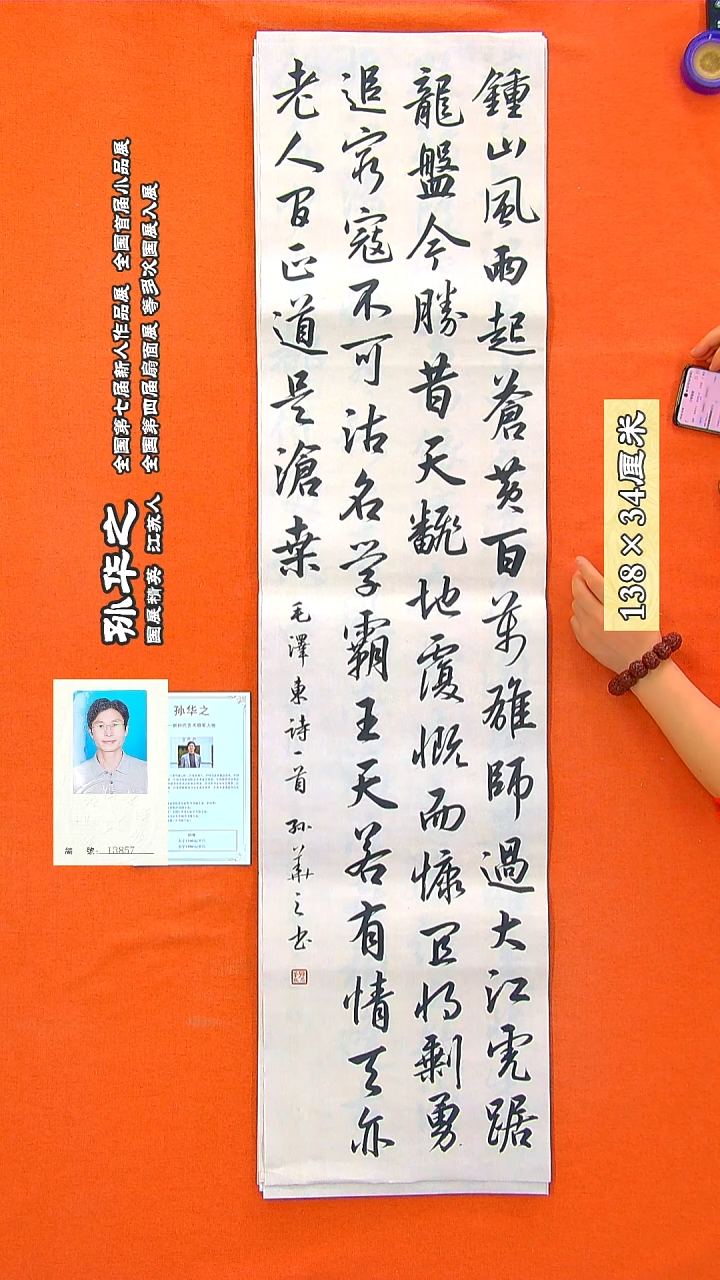 鍾山風雨起蒼黄百萬雄師過大江虎踞
龍盤今勝昔天翻地覆慨而慷宜将剩勇
追穷寇不可沽名学霸王天若有情天亦
老人间正道是滄桑
毛澤東诗一首 孙華之书
138×34厘米
全国第七届新人作品展 全国首届小品展
全国第四届扇面展 等多次国展入展
孙华之
国展精英 江苏人
孙华之
编 號: 13857